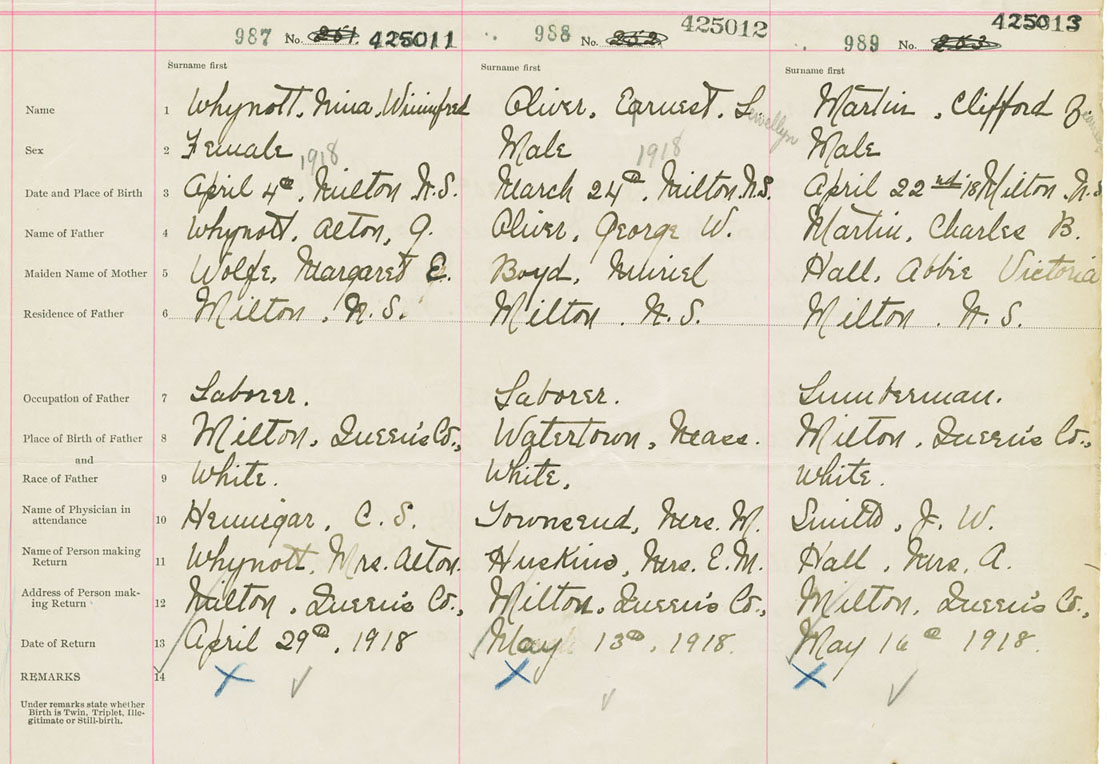 987 No. 251 425011 988 No. 252 425012 989 No. 253 425013
Surname first Surname first Surname first
Name 1 Whynott, Nina, Winnifred Oliver, Earnest, Lewellyn Martin, Clifford
Sex 2 Female Male Male
1918 1918
Date and Place of Birth 3 April 4th, Milton N.S. March 24th, Milton N.S. April 22nd '18 Milton. N.S.
Name of Father 4 Whynott, Alton, G. Oliver, George W. Martin, Charles B.
Maiden Name of Mother 5 Wolfe, Margaret E. Boyd, Muriel Hall, Abbie Victoria
Residence of Father 6 Milton, N.S. Milton. N.S. Milton. N.S.
Occupation of Father 7 Laborer. Laborer. Lumberman.
Place of Birth of Father 8 Milton, Queen's Co., Watertown, Mass. Milton, Queen's Co.,
and
Race of Father 9 White. White, White.
Name of Physician in
attendance 10 Hennigar, C. S. Townsend, Mrs. M. Smith, J. W.
Name of Person making
Return 11 Whynott, Mrs. Alton. Huskins, Mrs. E.M. Hall, Mrs. A.
Address of Person mak-
ing Return 12 Milton, Queen's Co., Milton, Queen's Co., Milton, Queen's Co.,
Date of Return 13 April 29th, 1918 May 13th, 1918. May 16th 1918.
REMARKS 14
Under remarks state whether
Birth is Twin, Triplet, Ille-
gitimate or Still-birth.